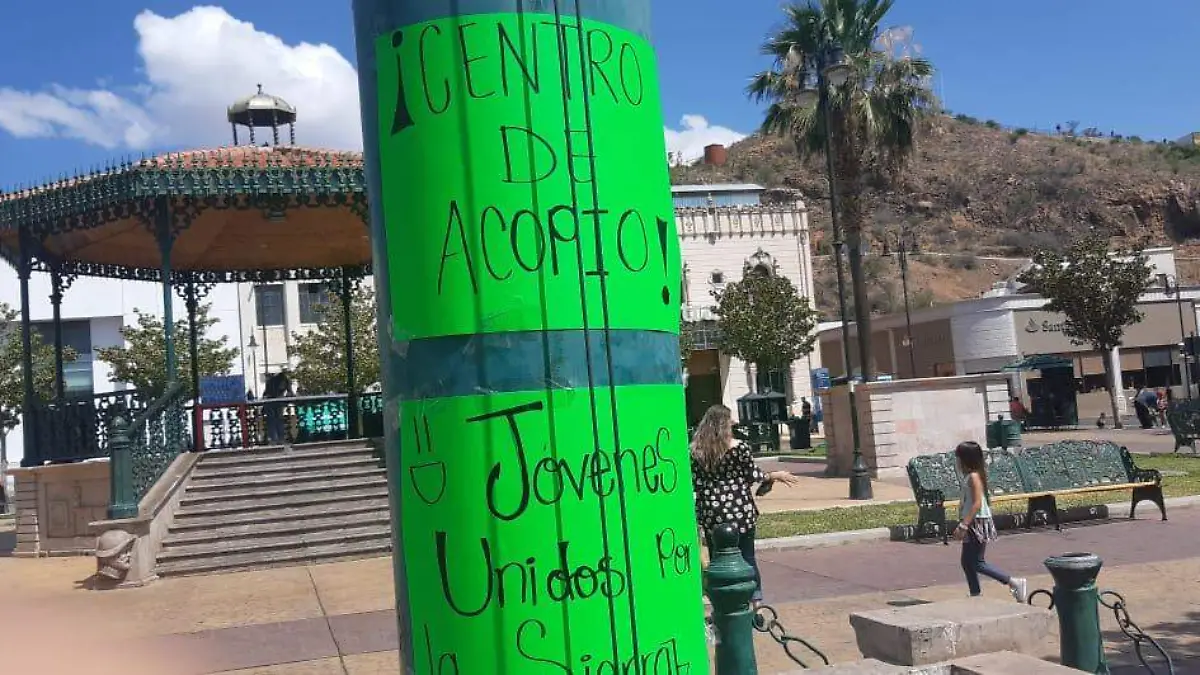 ¡CENTRO
DE
ACOPIO!
=D
Jóvenes
Unidos Por
la Sierra
Santander